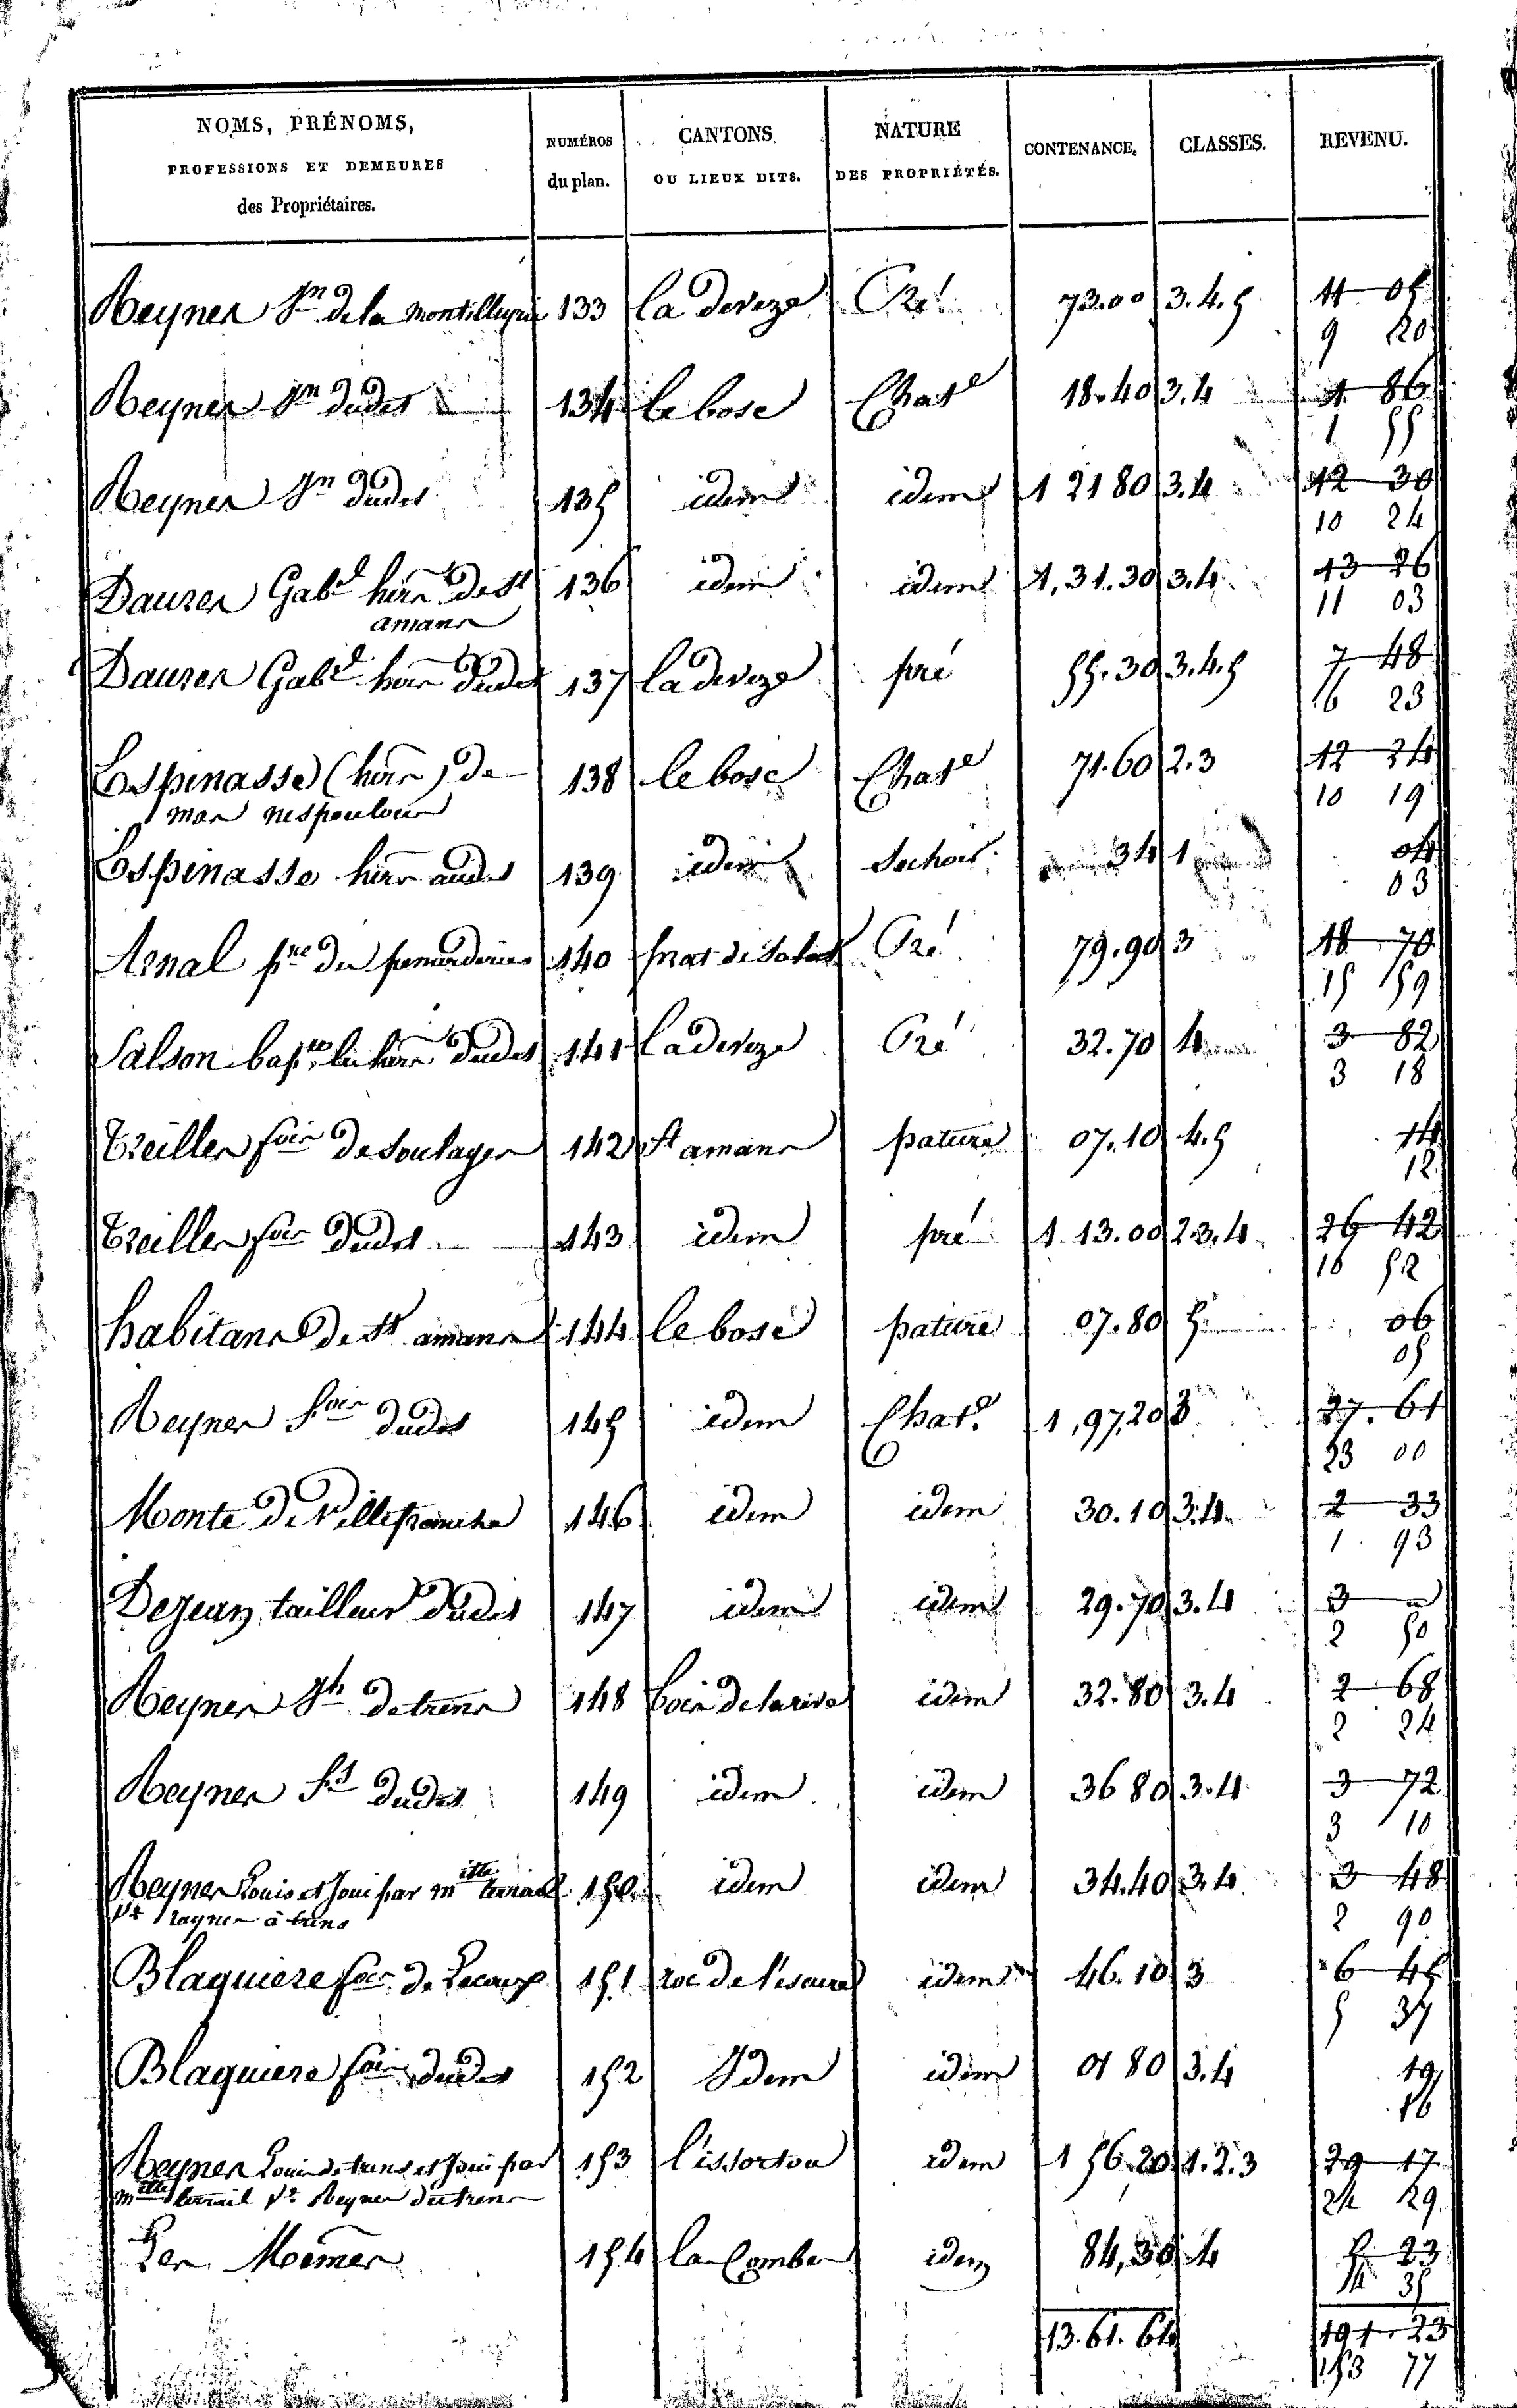 NOMS, PRÉNOMS,
PROFESSIONS ET DEMEURES
des Propriétaires.
NUMÉROS
du plan.
CANTONS
OU LIEUX DITS.
NATURE
DES PROPRIÉTÉS.
CONTENANCE.
CLASSES.
REVENU.
Reynes Jn de la 133 la deveze Pré 73.00 3.4.5 11 05
9 20
Reynes Jn dudet 134 le bosc Chate 18.40 3.4 1 86
1 55
Reynes Jn dudet 135 idem idem 1 21 80 3.4 12 30
10 24
Dauzes Gabl hers de St 136 idem idem 1,31.30 3.4 13 26
amans 11 03
Dauzes Gabl hers dudet 137 la deveze pré 55.30 3.4.5 7 48
6 23
Lespinasse (hers) de 138 le bosc Chate 71.60 2.3 12 24
mas nespoulous 10 19
Lespinasse hers audet 139 idem Sechoir 34 1 04
03
Arnal pre de 140 prat de Pré 79.90 3 18 70
15 59
Salson bapte hers dudet 141 la deveze Pré 32.70 4 3 82
3 18
Treilles fois de Soulages 142 St amans pature 07.10 4.5 14
12
Treilles fois dudet 143 idem pré 1.13.00 2.3.4 26 42
52
habitans de St amans 144 le bosc pature 07.80 5 06
05
Reynes fois dudet 145 idem Chate 1,97,20 3 27.61
23 00
Monte de Villefranche 146 idem idem 30.10 3.4 2 33
1 93
Dejean tailleur dudet 147 idem idem 29.70 3.4 3 "
2 50
Reynes de trens 148 bois de la idem 32.80 3.4 2 68
2 24
Reynes dudet 149 idem idem 36 80 3.4 3 72
3 10
Reynes Louis et joui par melle 150 idem idem 34.40 3.4 3 48
Ve raynes à trens 2 90
Blaquiere fois de 151 roc de idem 46.10 3 6 45
5 37
Blaquiere fois dudet 152 Idem idem 01 80 3.4 19
16
Reynes Louis de trens et joui par 153 l'issortou idem 1 56.20 1.2.3 29 17
melle Ve Reynes de trens 24 29
Les Mêmes 154 la Combe idem 84,30 4 5 23
4 35
13.61.64 191 23
153 77